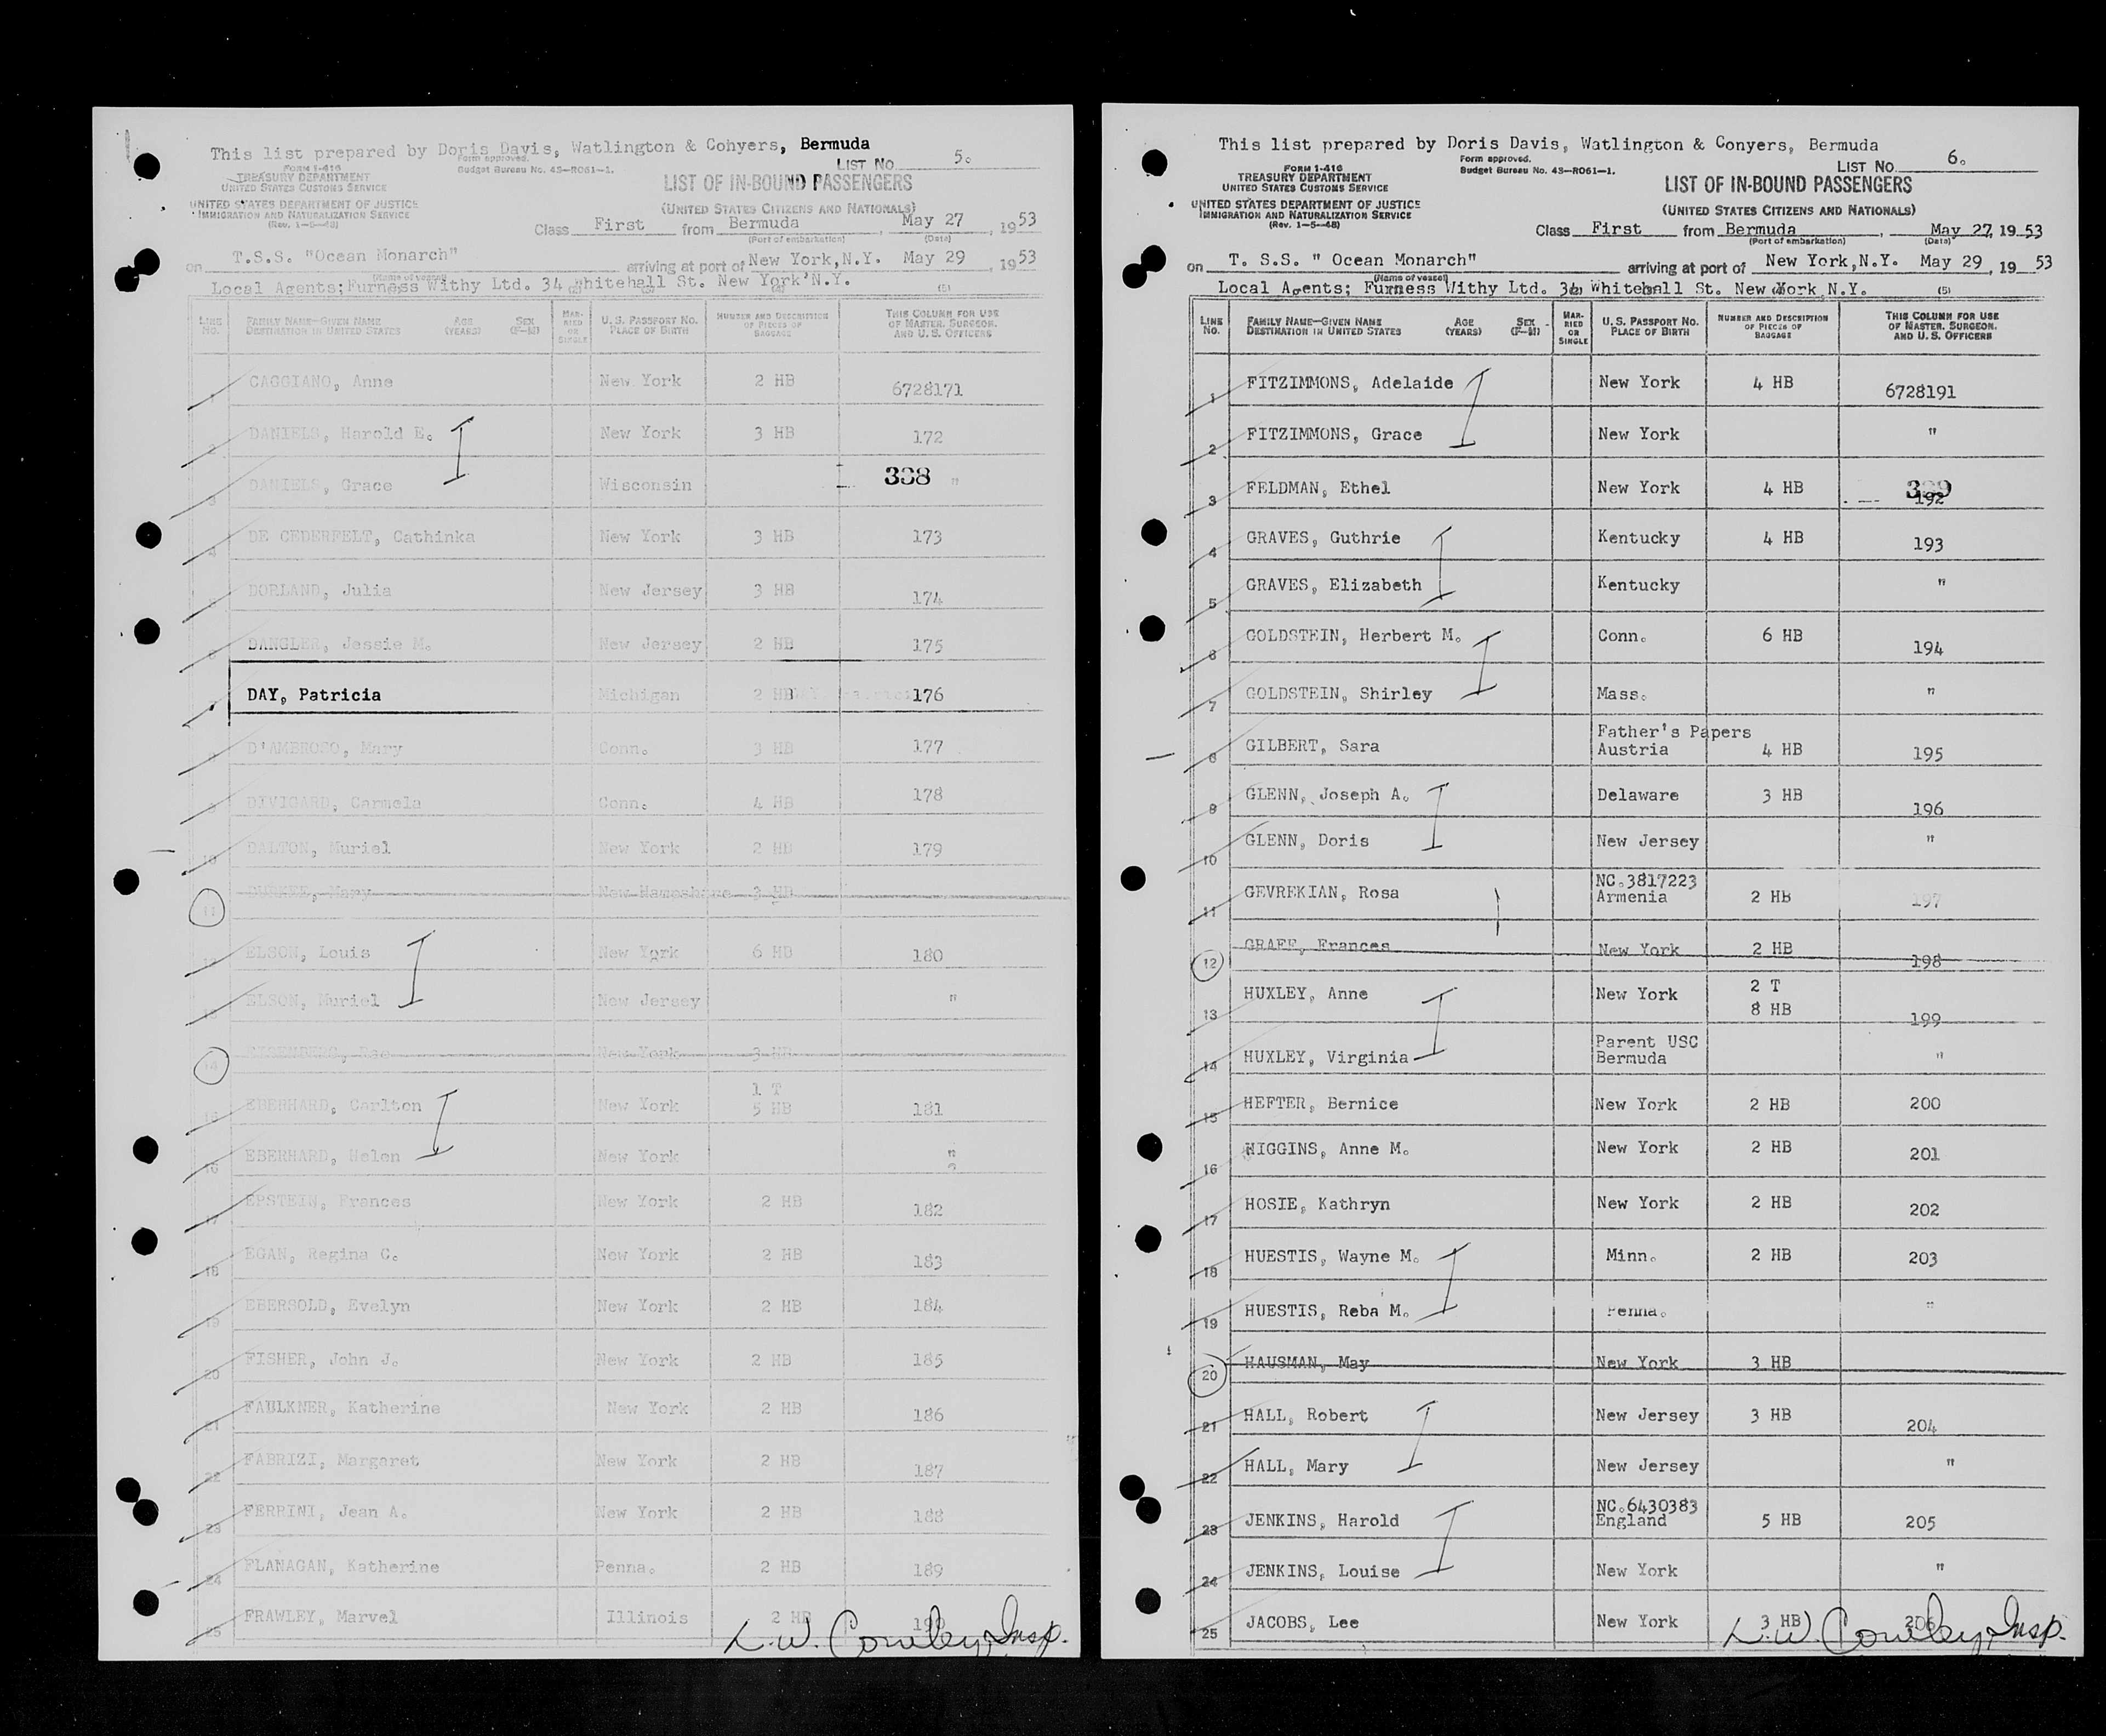 This list prepared by Doris Davis, Watlington & Conyers, Bermuda
LIST No. 5.
FORM I-416
TREASURY DEPARTMENT
UNITED STATES CUSTOMS SERVICE
Form approved.
Budget Bureau No. 43-R061-1.
LIST OF IN-BOUND PASSENGERS
UNITED STATES DEPARTMENT OF JUSTICE
IMMIGRATION AND NATURALIZATION SERVICE
(Rev. 1-5-48)
(UNITED STATES CITIZENS AND NATIONALS)
Class First from Bermuda, May 27, 1953
(Port of embarkation) (Date)
on T.S.S. "Ocean Monarch" arriving at port of New York, N.Y. May 29, 1953
(Name of vessel)
Local Agents; Furness Withy Ltd. 34 Whitehall St. New York N.Y.
(5)
LINE No. FAMILY NAME—GIVEN NAME DESTINATION IN UNITED STATES AGE (YEARS) SEX (F-M) MARRIED OR SINGLE U. S. PASSPORT No. PLACE OF BIRTH NUMBER AND DESCRIPTION OF PIECES OF BAGGAGE THIS COLUMN FOR USE OF MASTER, SURGEON, AND U. S. OFFICERS
1 CAGGIANO, Anne New York 2 HB 6728171
2 DANIELS, Harold E. New York 3 HB 172
3 DANIELS, Grace Wisconsin 338 "
4 DE CEDERFELT, Cathinka New York 3 HB 173
5 DORLAND, Julia New Jersey 3 HB 174
6 DANGLER, Jessie M. New Jersey 2 HB 175
DAY, Patricia Michigan 2 HB 176
8 D'AMBROSO, Mary Conn. 3 HB 177
9 DIVIGARD, Carmela Conn. 4 HB 178
10 DALTON, Muriel New York 2 HB 179
11 DURKEE, Mary New Hampshire 2 HB
12 ELSON, Louis New York 6 HB 180
13 ELSON, Muriel New Jersey "
14 EISENBERG, Rae New York 3 HB
15 EBERHARD, Carlton New York 1 T 5 HB 181
16 EBERHARD, Helen New York "
17 EPSTEIN, Frances New York 2 HB 182
18 EGAN, Regina C. New York 2 HB 183
19 EBERSOLD, Evelyn New York 2 HB 184
20 FISHER, John J. New York 2 HB 185
21 FAULKNER, Katherine New York 2 HB 186
22 FABRIZI, Margaret New York 2 HB 187
23 FERRINI, Jean A. New York 2 HB 188
24 FLANAGAN, Katherine Penna. 2 HB 189
25 FRAWLEY, Marvel Illinois 2 HB 190
L.W. Cowley, Insp.
This list prepared by Doris Davis, Watlington & Conyers, Bermuda
LIST No. 6.
FORM I-416
TREASURY DEPARTMENT
UNITED STATES CUSTOMS SERVICE
Form approved.
Budget Bureau No. 43-R061-1.
LIST OF IN-BOUND PASSENGERS
UNITED STATES DEPARTMENT OF JUSTICE
IMMIGRATION AND NATURALIZATION SERVICE
(Rev. 1-5-48)
(UNITED STATES CITIZENS AND NATIONALS)
Class First from Bermuda, May 27, 1953
(Port of embarkation) (Date)
on T. S.S. " Ocean Monarch" arriving at port of New York, N.Y. May 29, 1953
(Name of vessel)
Local Agents; Furness Withy Ltd. 34 Whitehall St. New York, N.Y.
(5)
LINE No. FAMILY NAME—GIVEN NAME DESTINATION IN UNITED STATES AGE (YEARS) SEX (F-M) MARRIED OR SINGLE U. S. PASSPORT No. PLACE OF BIRTH NUMBER AND DESCRIPTION OF PIECES OF BAGGAGE THIS COLUMN FOR USE OF MASTER, SURGEON, AND U. S. OFFICERS
1 FITZIMMONS, Adelaide New York 4 HB 6728191
2 FITZIMMONS, Grace New York "
3 FELDMAN, Ethel New York 4 HB 339 192
4 GRAVES, Guthrie Kentucky 4 HB 193
5 GRAVES, Elizabeth Kentucky "
6 GOLDSTEIN, Herbert M. Conn. 6 HB 194
7 GOLDSTEIN, Shirley Mass. "
8 GILBERT, Sara Father's Papers Austria 4 HB 195
9 GLENN, Joseph A. Delaware 3 HB 196
10 GLENN, Doris New Jersey "
11 GEVREKIAN, Rosa NC.3817223 Armenia 2 HB 197
12 GRAFF, Frances New York 2 HB 198
13 HUXLEY, Anne New York 2 T 8 HB 199
14 HUXLEY, Virginia Parent USC Bermuda "
15 HEFTER, Bernice New York 2 HB 200
16 HIGGINS, Anne M. New York 2 HB 201
17 HOSIE, Kathryn New York 2 HB 202
18 HUESTIS, Wayne M. Minn. 2 HB 203
19 HUESTIS, Reba M. Penna. "
20 HAUSMAN, May New York 3 HB
21 HALL, Robert New Jersey 3 HB 204
22 HALL, Mary New Jersey "
23 JENKINS, Harold NC.6430383 England 5 HB 205
24 JENKINS, Louise New York "
25 JACOBS, Lee New York 3 HB 206
L.W. Cowley, Insp.